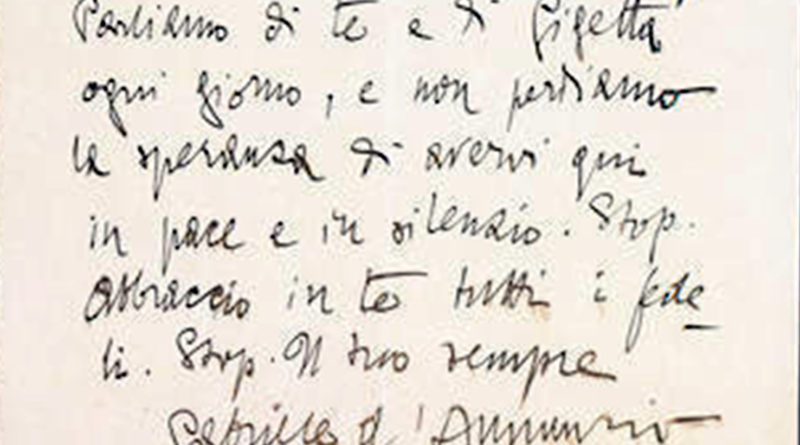 Parliamo di te e di Gigetta
ogni giorno, e non perdiamo
la speranza di avervi qui
in pace e in silenzio. Stop.
Abbraccio in te tutti i fede
li. Stop. Il tuo sempre
Gabriele d'Annunzio